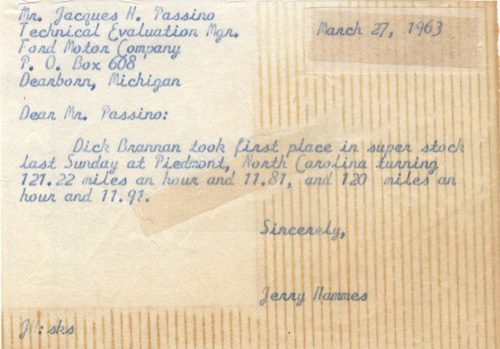 Mr. Jacques H. Passino
Technical Evaluation Mgr.
Ford Motor Company
P. O. Box 608
Dearborn, Michigan
March 27, 1963
Dear Mr. Passino:
Dick Brannan took first place in super stock
last Sunday at Piedmont, North Carolina turning
121.22 miles an hour and 11.81, and 120 miles an
hour and 11.91.
Sincerely,
Jerry Hammes
JH:sks